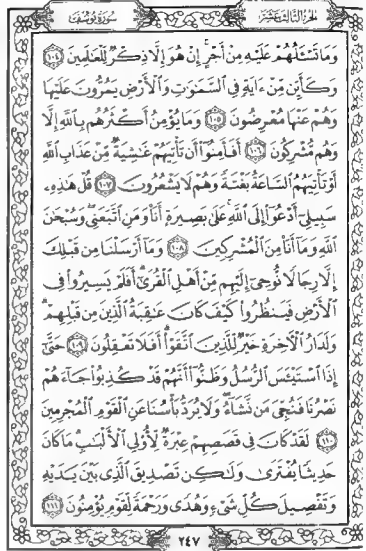 الجزء الثالث عشر سورة يوسف
وَمَا تَسْـَٔلُهُمْ عَلَيْهِ مِنْ أَجْرٍ ۚ إِنْ هُوَ إِلَّا ذِكْرٌ لِّلْعَٰلَمِينَ ١٠٤
وَكَأَيِّن مِّنْ ءَايَةٍ فِى ٱلسَّمَٰوَٰتِ وَٱلْأَرْضِ يَمُرُّونَ عَلَيْهَا
وَهُمْ عَنْهَا مُعْرِضُونَ ١٠٥ وَمَا يُؤْمِنُ أَكْثَرُهُم بِٱللَّهِ إِلَّا
وَهُم مُّشْرِكُونَ ١٠٦ أَفَأَمِنُوٓا۟ أَن تَأْتِيَهُمْ غَٰشِيَةٌ مِّنْ عَذَابِ ٱللَّهِ
أَوْ تَأْتِيَهُمُ ٱلسَّاعَةُ بَغْتَةً وَهُمْ لَا يَشْعُرُونَ ١٠٧ قُلْ هَٰذِهِۦ
سَبِيلِىٓ أَدْعُوٓا۟ إِلَى ٱللَّهِ ۚ عَلَىٰ بَصِيرَةٍ أَنَا۠ وَمَنِ ٱتَّبَعَنِى ۖ وَسُبْحَٰنَ
ٱللَّهِ وَمَآ أَنَا۠ مِنَ ٱلْمُشْرِكِينَ ١٠٨ وَمَآ أَرْسَلْنَا مِن قَبْلِكَ
إِلَّا رِجَالًا نُّوحِىٓ إِلَيْهِم مِّنْ أَهْلِ ٱلْقُرَىٰٓ ۗ أَفَلَمْ يَسِيرُوا۟ فِى
ٱلْأَرْضِ فَيَنظُرُوا۟ كَيْفَ كَانَ عَٰقِبَةُ ٱلَّذِينَ مِن قَبْلِهِمْ ۗ
وَلَدَارُ ٱلْءَاخِرَةِ خَيْرٌ لِّلَّذِينَ ٱتَّقَوْا۟ ۗ أَفَلَا تَعْقِلُونَ ١٠٩ حَتَّىٰٓ
إِذَا ٱسْتَيْـَٔسَ ٱلرُّسُلُ وَظَنُّوٓا۟ أَنَّهُمْ قَدْ كُذِبُوا۟ جَآءَهُمْ
نَصْرُنَا فَنُجِّىَ مَن نَّشَآءُ ۖ وَلَا يُرَدُّ بَأْسُنَا عَنِ ٱلْقَوْمِ ٱلْمُجْرِمِينَ
١١٠ لَقَدْ كَانَ فِى قَصَصِهِمْ عِبْرَةٌ لِّأُو۟لِى ٱلْأَلْبَٰبِ ۗ مَا كَانَ
حَدِيثًا يُفْتَرَىٰ وَلَٰكِن تَصْدِيقَ ٱلَّذِى بَيْنَ يَدَيْهِ
وَتَفْصِيلَ كُلِّ شَىْءٍ وَهُدًى وَرَحْمَةً لِّقَوْمٍ يُؤْمِنُونَ ١١١
٢٤٧